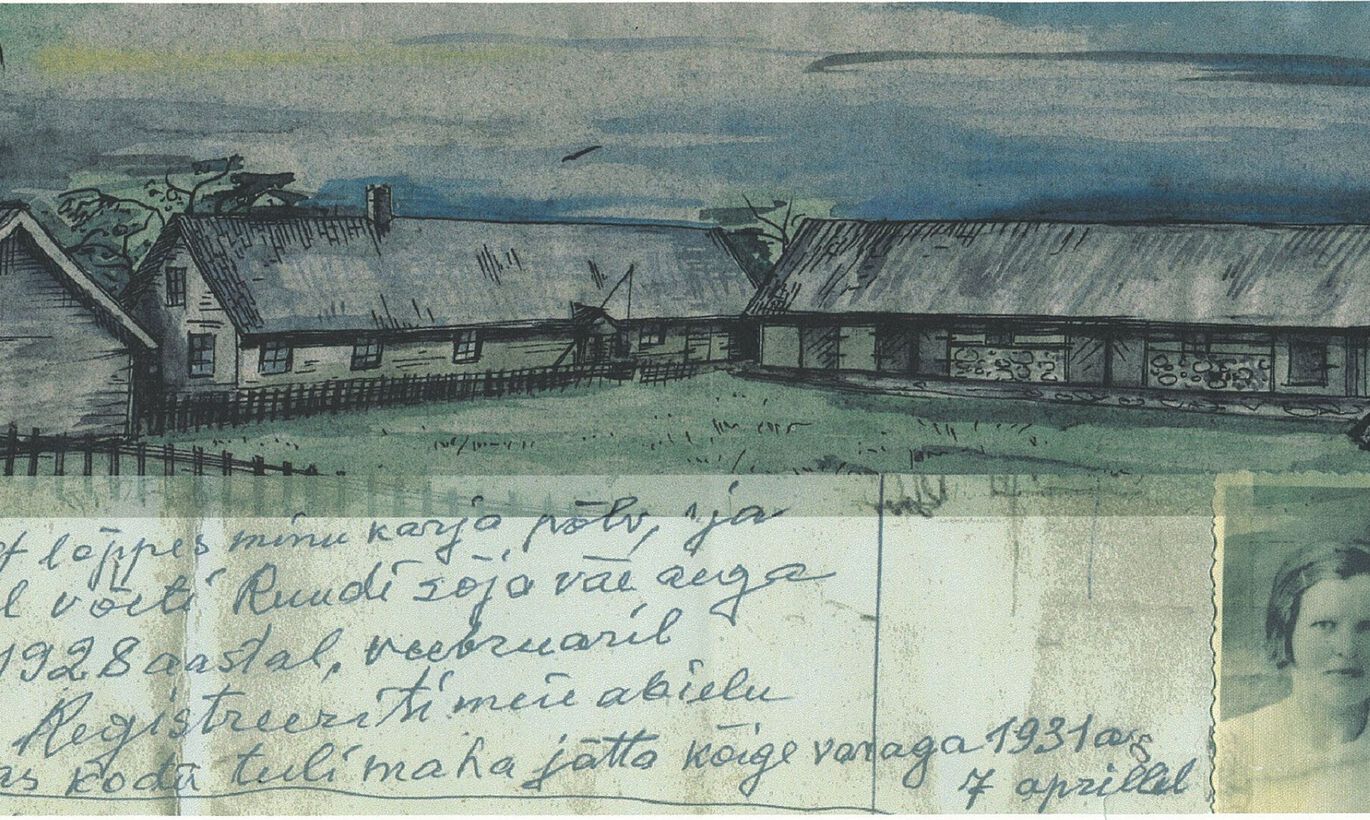 löppes minu karja pölv, ja
vöeti Ruudi söja väe aega
1928 aastal, veebruaril
Registreeriti meie abielu
as kodu tuli maha jätta köige varaga 1931 a,
7 aprillil